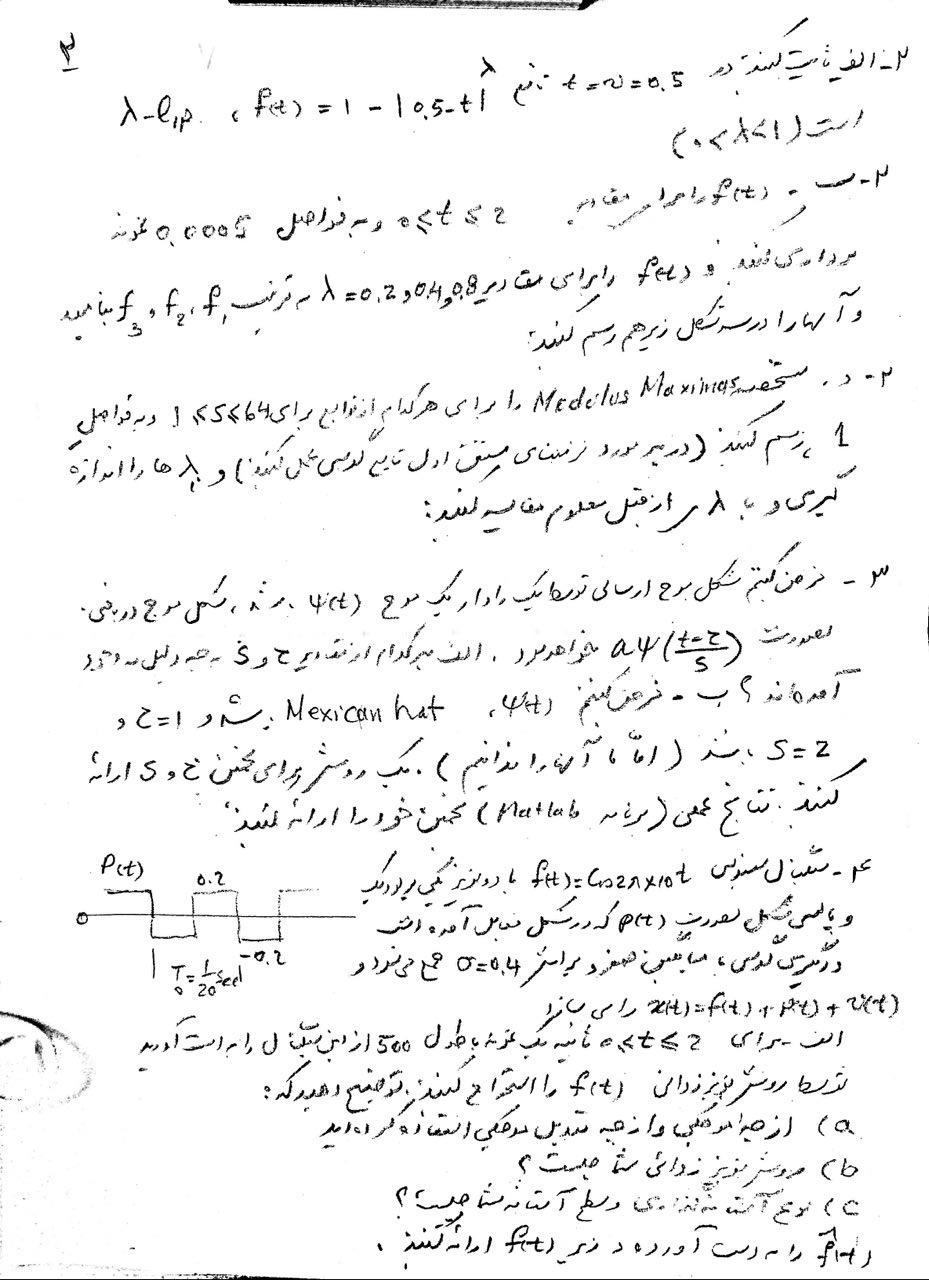 ۲
۲- الف ثابت کنید در t=v=0.5 تابع f(t) = 1 - |0.5-t|^λ ، λ-Lip
است (0<λ<1)
۲- ب - f(t) را برای مقادیر 0≤t≤2 و به فواصل 0.0005 نمونه
برداری کنید و f(t) را برای مقادیر λ=0.2,0.4,0.8 به ترتیب f1, f2, f3 بنامید
و آنها را در سه شکل زیر هم رسم کنید:
۲- د. مشخصه Modulus Maximas را برای هر کدام از توابع برای 1≤s≤64 و به فواصل
1 رسم کنید (در این مورد از مشتق اول تابع گوسی عمل کنید) و λ ها را اندازه
گیری و با λ از قبل معلوم مقایسه کنید:
۳- فرض کنیم شکل موج ارسالی توسط یک رادار یک موج ψ(t) باشد، شکل موج دریافتی
بصورت aψ((t-τ)/s) خواهد بود. الف هر کدام از مقادیر τ و s به چه دلیل به وجود
آمده‌اند؟ ب - فرض کنیم ψ(t) ، Mexican hat باشد و τ=1 و
s=2 باشد (اما ما آنها را ندانیم). یک روش برای تخمین τ و s ارائه
کنید. نتایج عملی (برنامه Matlab) تخمین خود را ارائه کنید.
۴- سیگنال سینوسی f(t)=Cos2π×10t با دو نویز یکی پریودیک
و پالسی شکل بصورت p(t) که در شکل مقابل آمده است
و دیگری گوسی با میانگین صفر و واریانس σ=0.4 جمع می‌شود و
x(t)=f(t)+p(t)+v(t) را می سازد
P(t)
0.2
0
-0.2
T0=1/20 sec
الف - برای 0≤t≤2 ثانیه یک نمونه با طول 500 از این سیگنال را بدست آورید
توسط روش نویززدائی f(t) را استخراج کنید. توضیح دهید که:
a) از چه موجکی و از چه تبدیل موجکی استفاده کرده‌اید
b) روش نویز زدائی شما چیست؟
c) نوع آستانه‌گذاری و سطح آستانه شما چیست؟
f̂(t) را به دست آورده و زیر f(t) ارائه کنید.